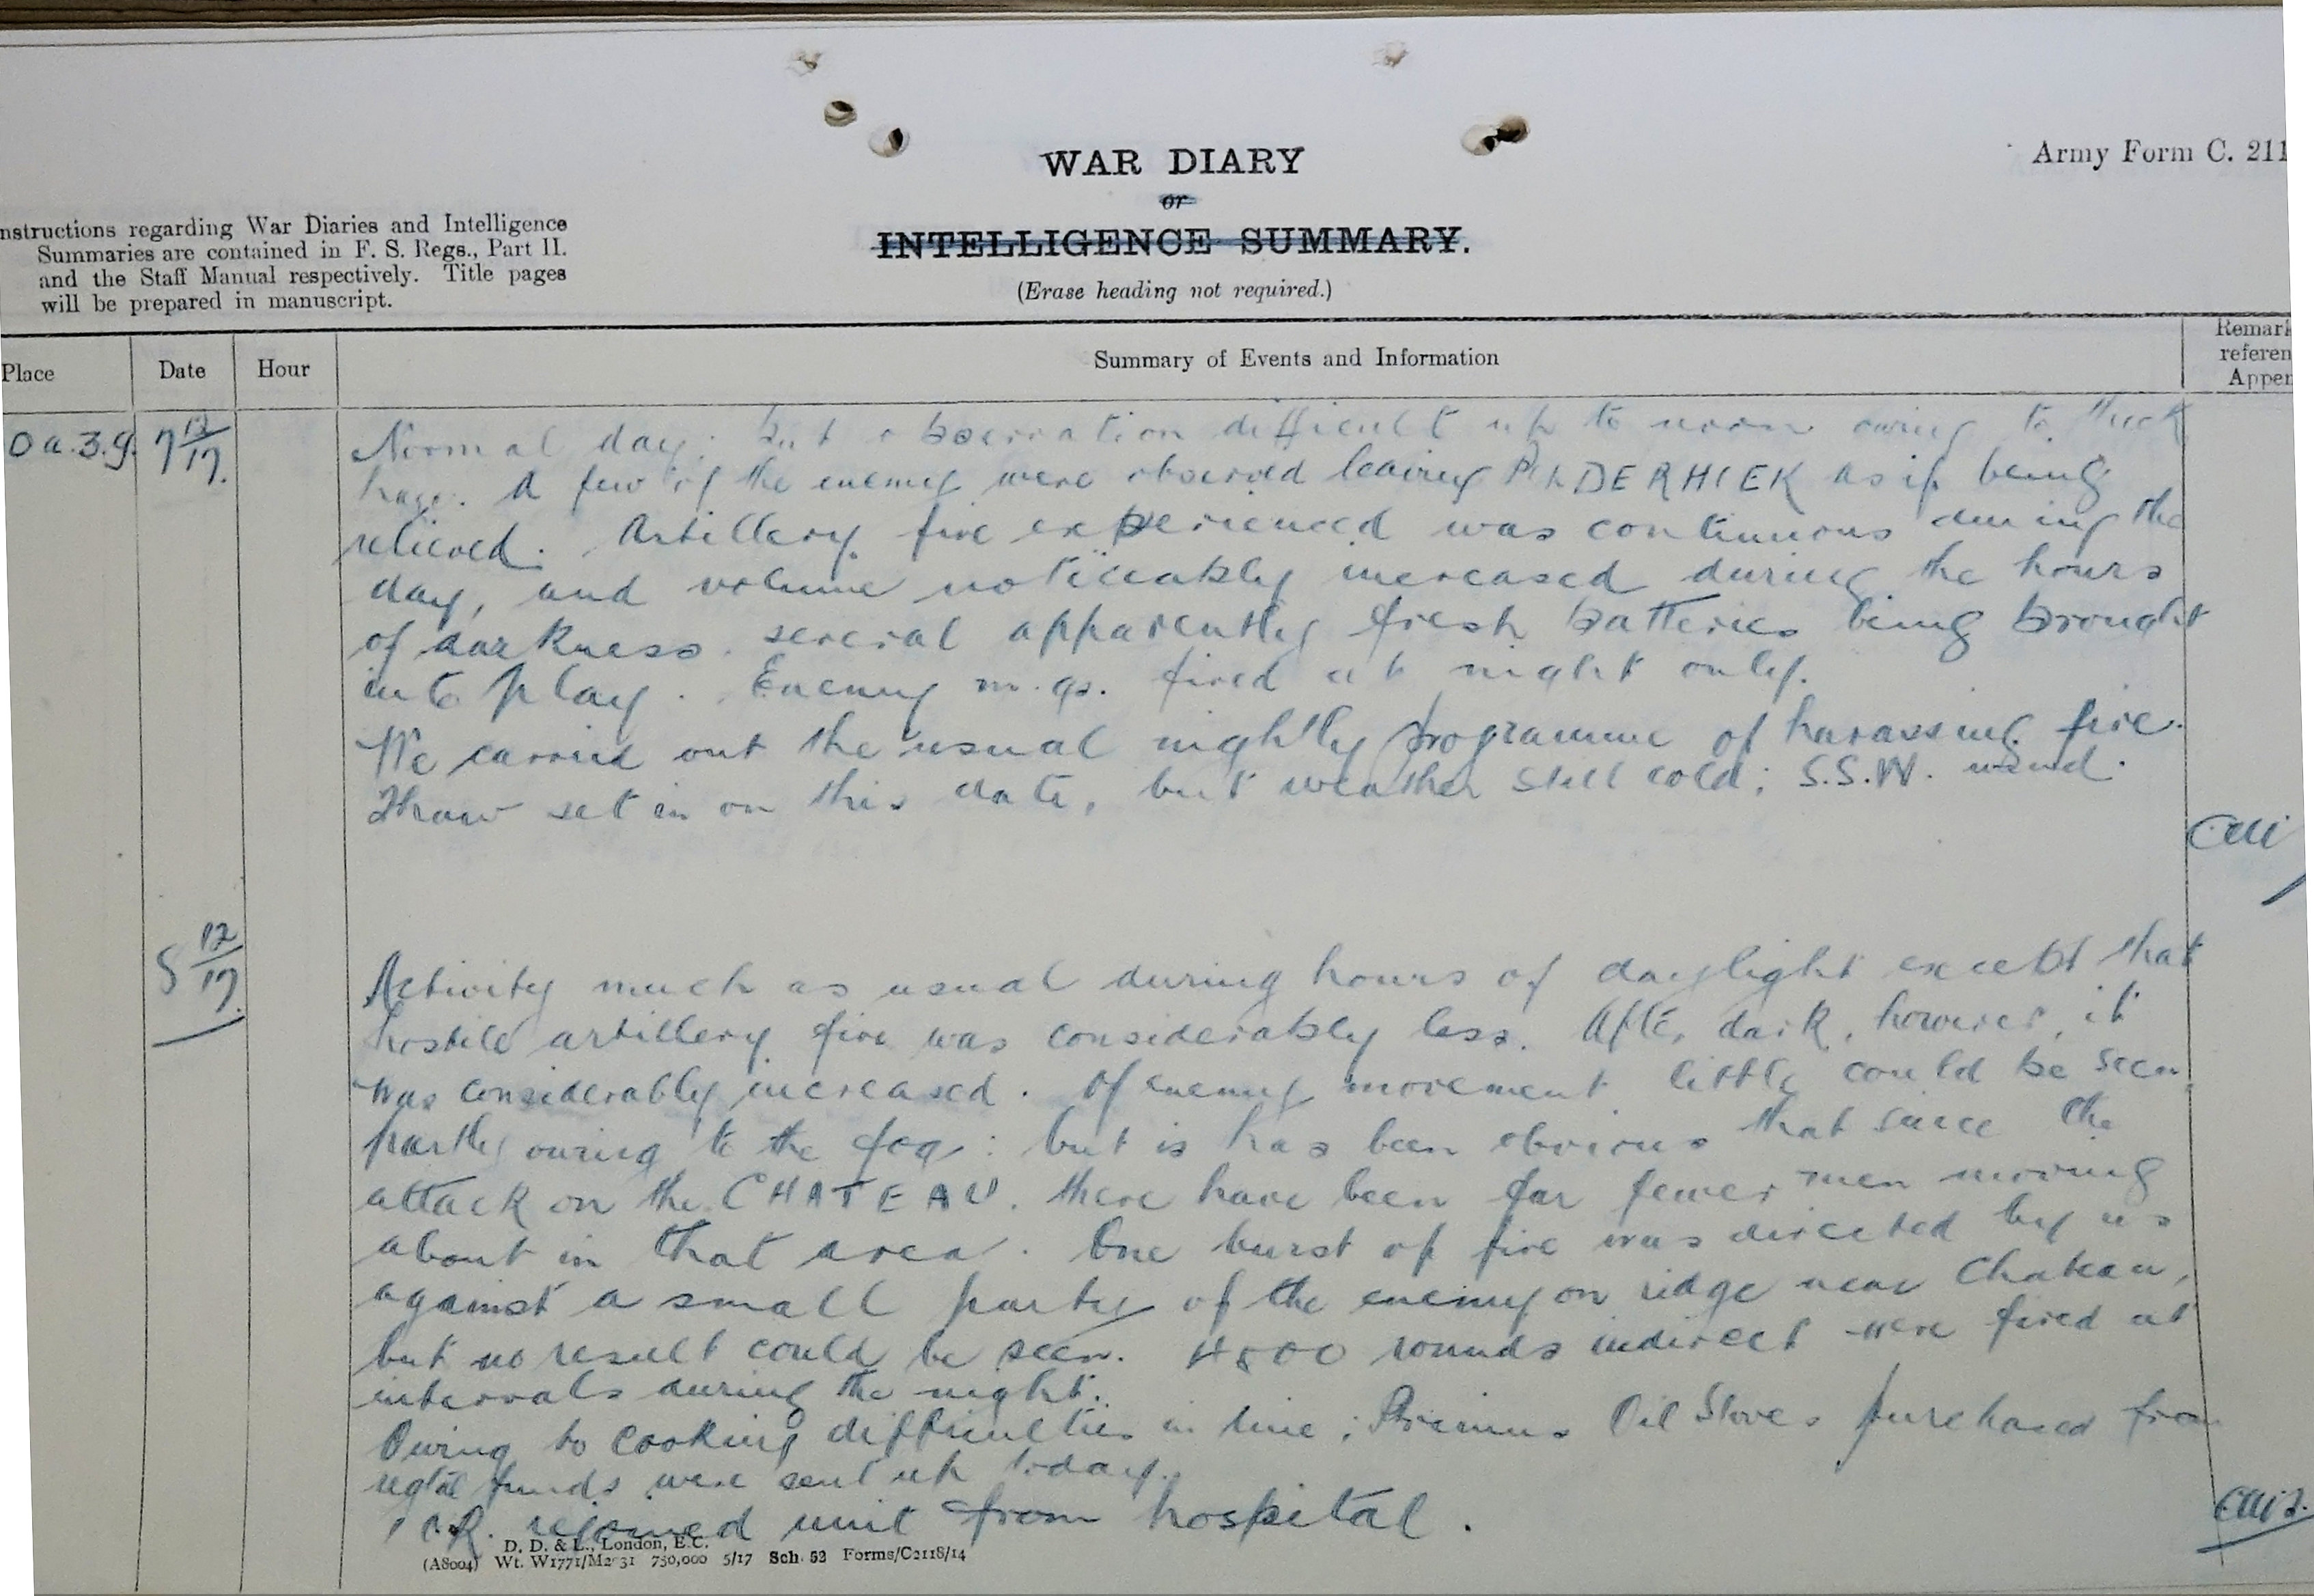 WAR DIARY
or
INTELLIGENCE SUMMARY.
(Erase heading not required.)
Army Form C. 211
nstructions regarding War Diaries and Intelligence
Summaries are contained in F. S. Regs., Part II.
and the Staff Manual respectively. Title pages
will be prepared in manuscript.
Place
Date
Hour
Summary of Events and Information
Remark
referen
Appen
7 12/17.
Normal day; but observation difficult up to noon owing to thick
haze. A few of the enemy were observed leaving POLDERHOEK as if being
relieved. Artillery fire experienced was continuous during the
day, and volume noticeably increased during the hours
of darkness. several apparently fresh batteries being brought
into play. Enemy m.gs. fired at night only.
We carried out the usual nightly programme of harassing fire.
Thaw set in on this date, but weather still cold; S.S.W. wind.
8 12/17.
Activity much as usual during hours of daylight except that
hostile artillery fire was considerably less. After dark, however, it
was considerably increased. Of enemy movement little could be seen,
partly owing to the fog: but is has been obvious that since the
attack on the CHATEAU. there have been far fewer men moving
about in that area. One burst of fire was directed by us
against a small party of the enemy on ridge near Chateau,
but no result could be seen. 4800 rounds indirect were fired at
intervals during the night.
Owing to cooking difficulties in line; Primus Oil Stoves purchased from
regtal funds were sent up today.
1 O.R. rejoined unit from hospital.
D. D. & L., London, E.C.
(A8004) Wt. W1771/M2 31 750,000 5/17 Sch. 52 Forms/C2118/14